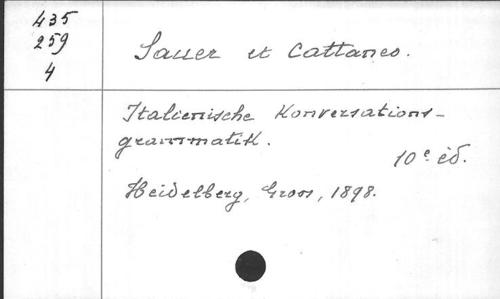 435
259
4
Sauer et Cattaneo.
Italienische Konversations-
grammatik.
10e éd.
Heidelberg, Groos, 1898.